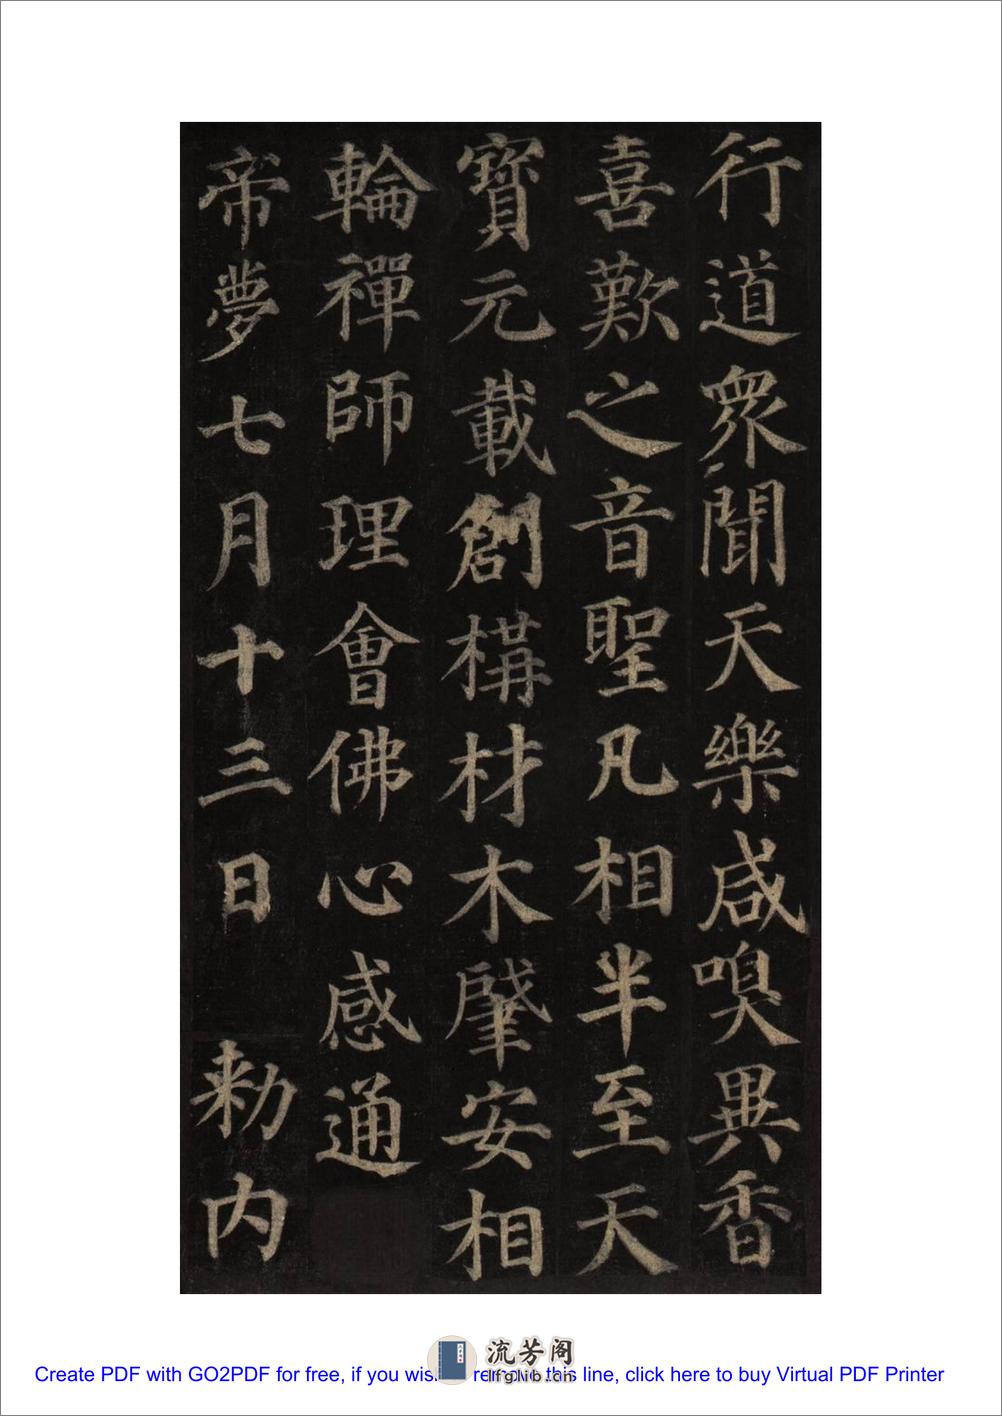 行道眾聞天樂咸嗅異香
喜歎之音聖凡相半至天
寶元載創構材木肈安相
輪禪師理會佛心感通
帝夢七月十三日 勑内
流芳阁
lfglib.cn
Create PDF with GO2PDF for free, if you wish to remove this line, click here to buy Virtual PDF Printer